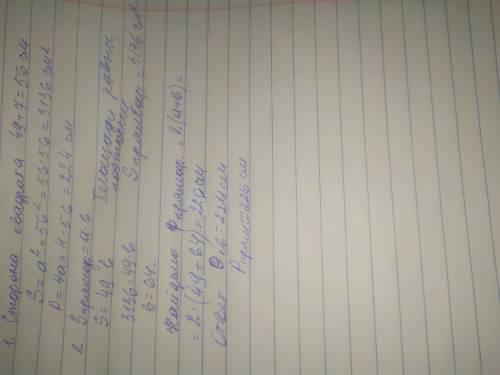 1. Сторона квадрата 49+7=56 см
S=a²=56²=56·56=3136 см²
P=4a=4·56=224 см
2. Sпрямоуг=a·b
S=49·b Площади равны,
S прямоуг. = 3136 см²
3136=49·b
b=64.
Найдем Pпрямоуг. = 2(a+b)=
=2·(49+64)=226 см
Ответ: Pкв=224 см
Pпрям=226 см